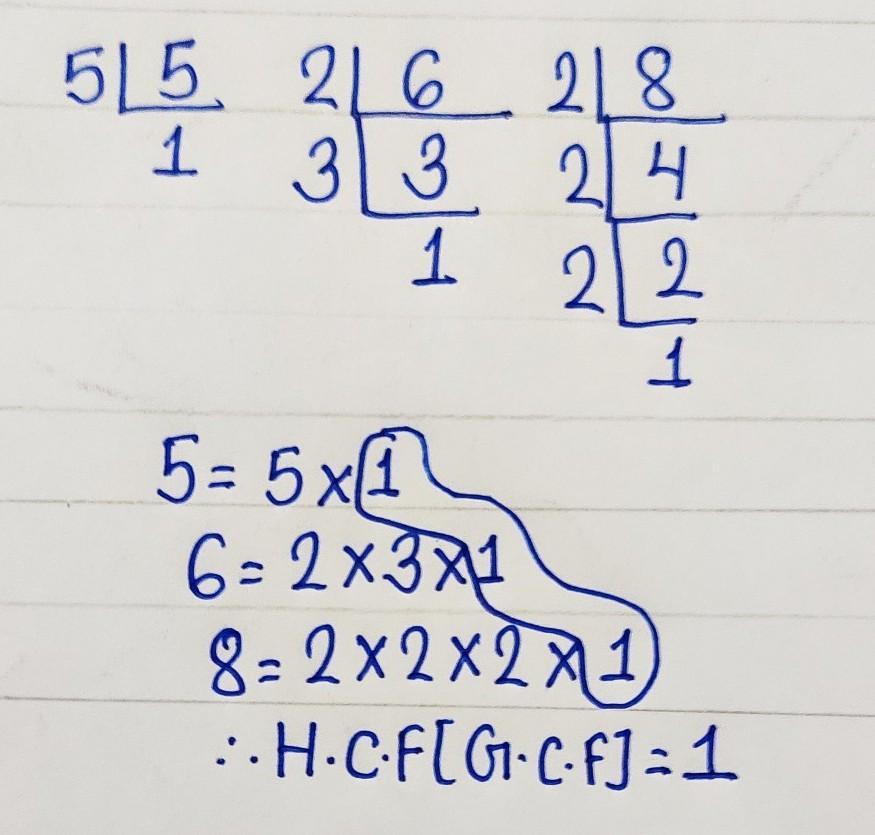 5|5 2|6 2|8
1 3|3 2|4
1 2|2
1
5 = 5 × 1
6 = 2 × 3 × 1
8 = 2 × 2 × 2 × 1
∴ H.C.F [G.C.F] = 1